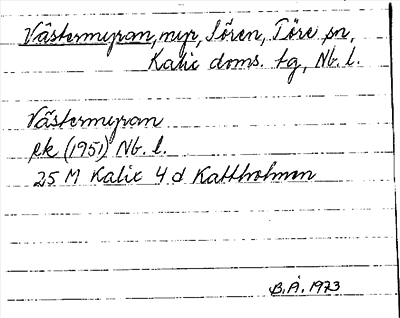 Västermyran, myr, Sören, Töre sn,
Kalix doms. tg, Nb. l.
Västermyran
rk (1951) Nb. l.
25 M Kalix 4 d Kattholmen
B.Å. 1973